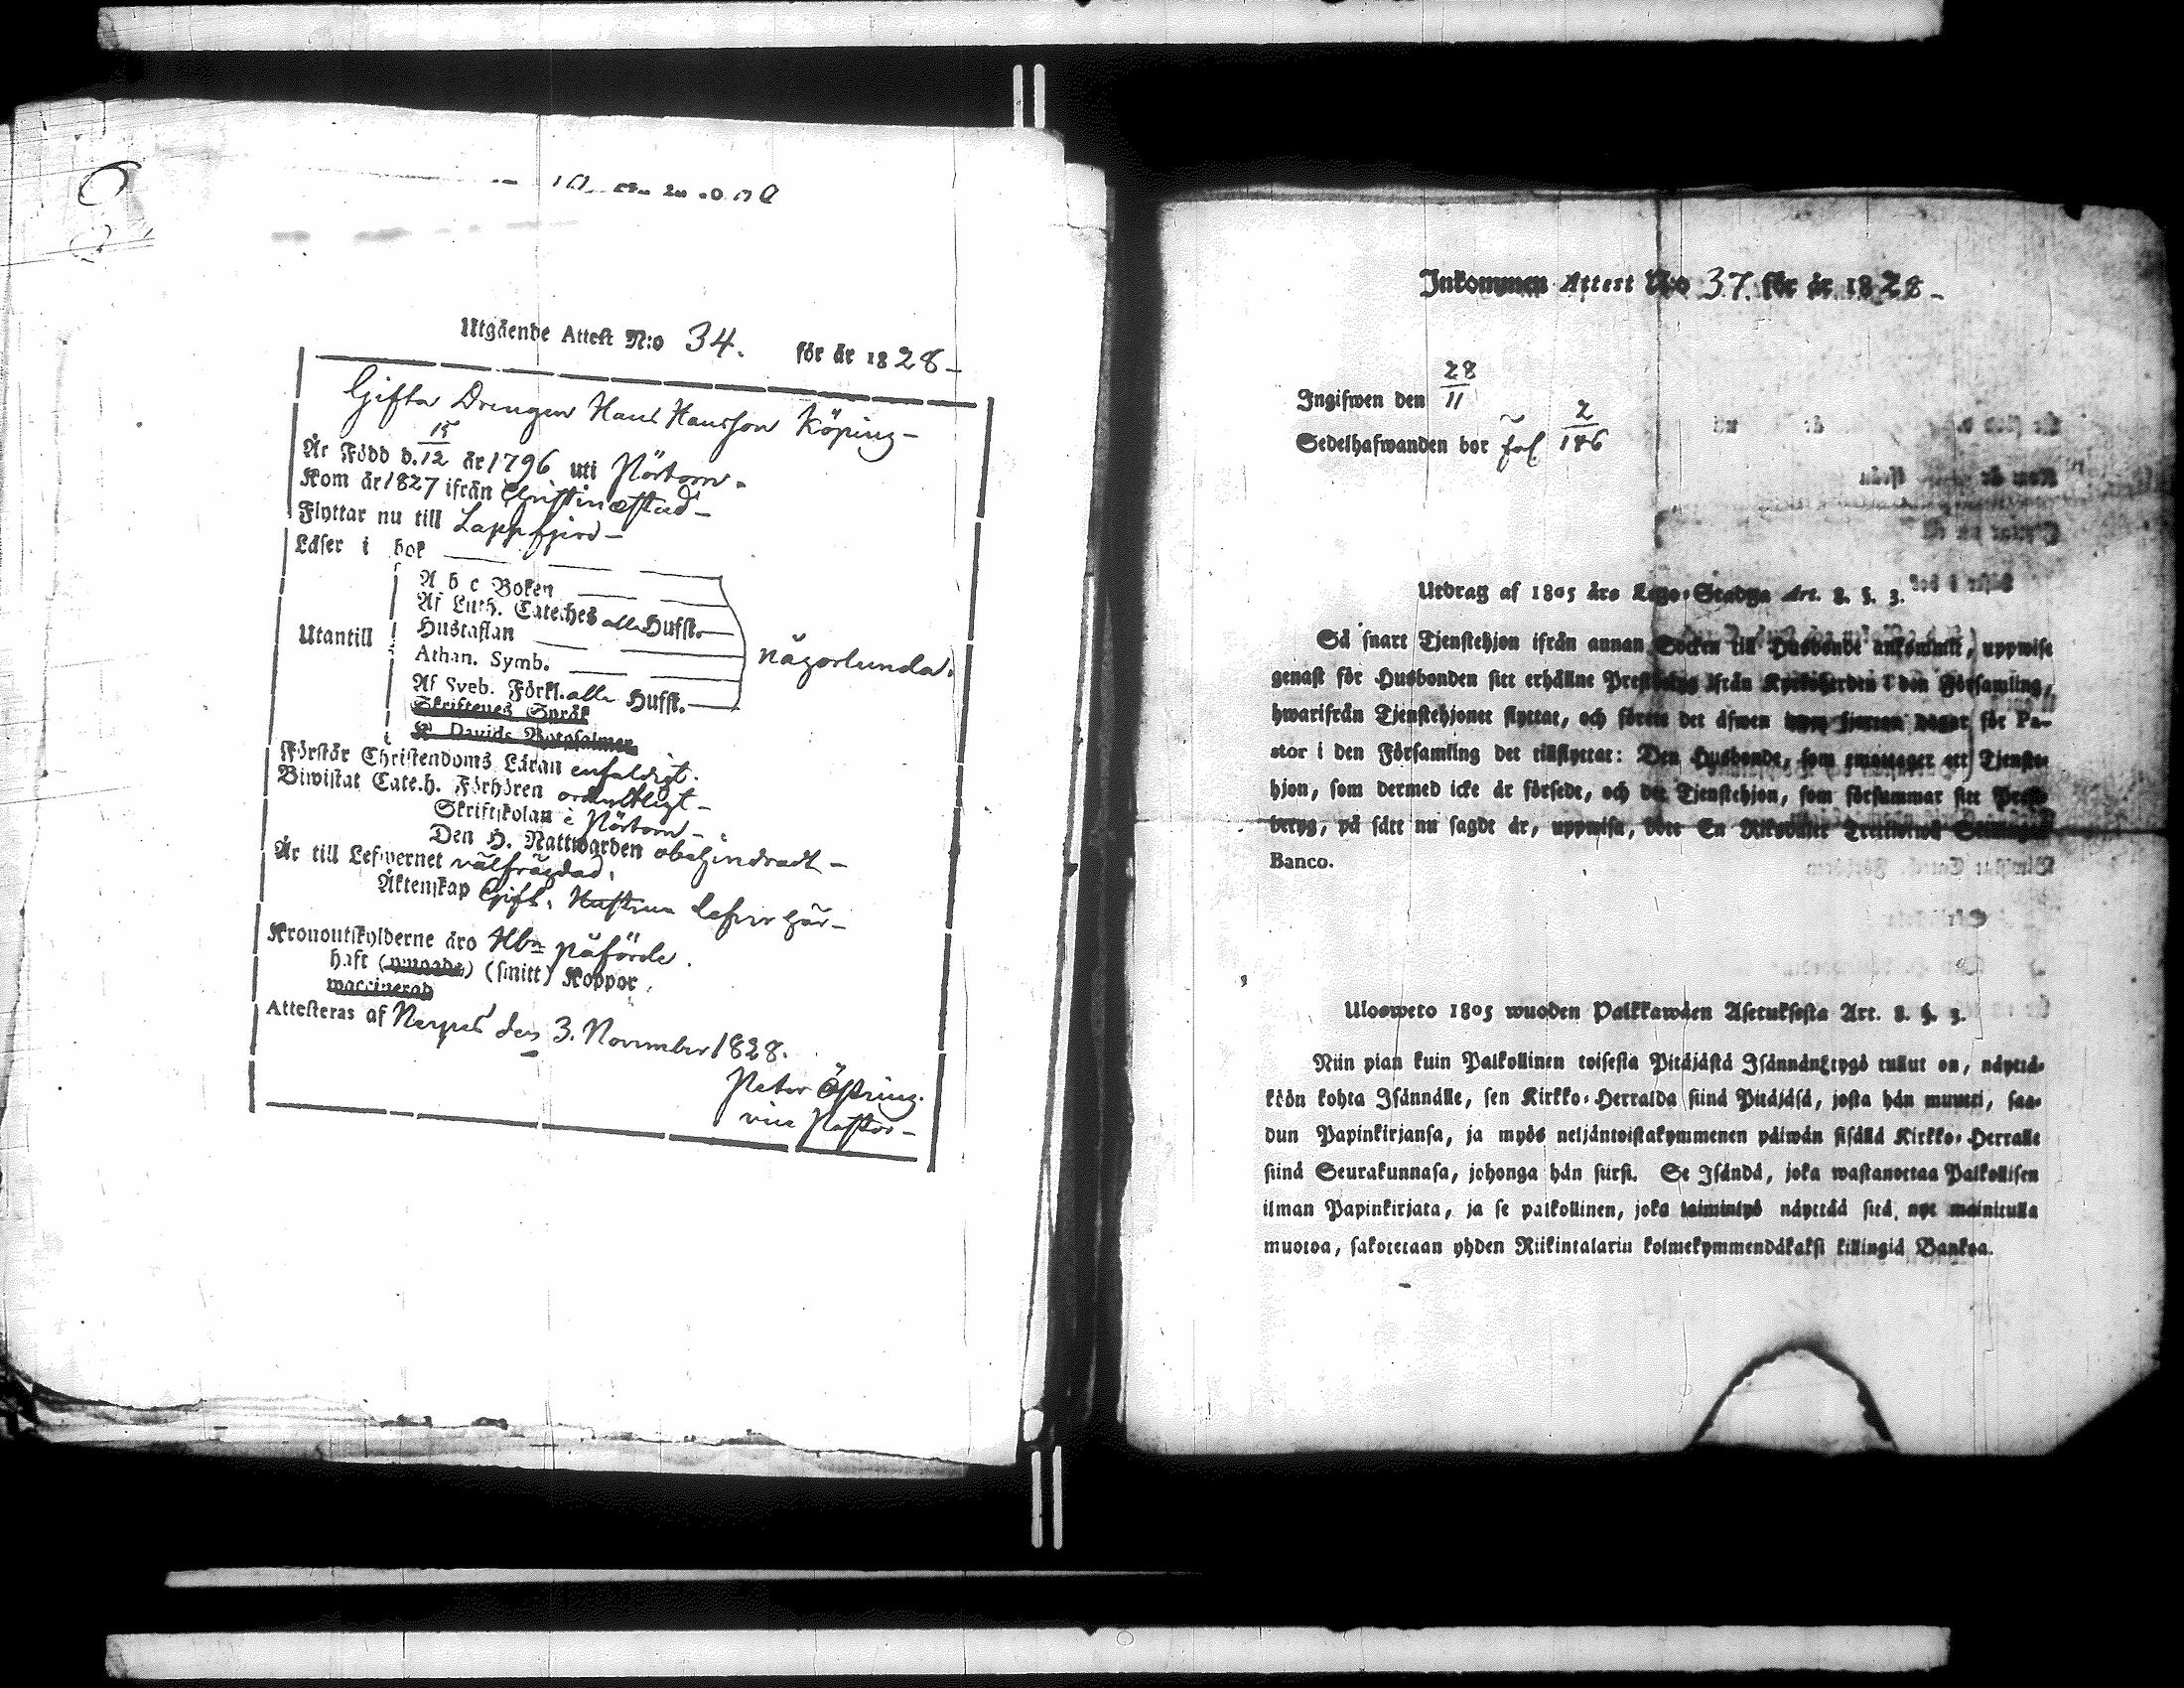 Utgående Attest N:o 34. för år 1828 –
Gifta Drengen Hans Hansson Köping –
Är Född d. 15/12 år 1796 uti Pörtom.
Kom år 1827 ifrån Christinæstad –
Flyttar nu till Lappfjerd –
Läser i bok
A b c Boken
Af Luth. Cateches alla Hufst.
Hustaflan
Utantill
Athan. Symb.
någorlunda.
Af Sveb. Förkl. alla Hufst.
Skriftenes Språk
K. Davids Botpsalmer
Förstår Christendoms Läran enfaldigt.
Biwistat Catech. Förhören ordentligt –
Skriftskolan i Pörtom –
Den H. Nattwarden obehindradt –
Är till Lefwernet välfrägdad.
Äktenskap Gift. Hustrun lefver här –
Kronoutskylderne äro Hbn påförde.
haft (smitt) Koppor.
waccinerad
Attesteras af Nerpes den 3. November 1828.
Peter Östring.
vice Pastor –
Inkommen Attest N:o 37. för år 1828 –
Ingifwen den 28/11
Sedelhafwanden bor fol 2/186
Utdrag af 1805 års Lego-Stadga Art. 8. §. 3.
Så snart Tjenstehjon ifrån annan Socken till Husbonde ankommit, uppwise
genast för Husbonden sitt erhållne Prestbetyg ifrån Kyrkoherden i den Församling,
hwarifrån Tjenstehjonet flyttat, och förete det äfwen inom fjorton dagar för Pa-
stor i den Församling det tillflyttat: Den Husbonde, som emottager ett Tjenste-
hjon, som dermed icke är försedt, och det Tjenstehjon, som försummar sitt Prest-
betyg, på sätt nu sagdt är, uppwisa, böte En Riksdaler Trettiotwå Skillingar
Banco.
Ulosweto 1805 wuoden Palkkawäen Asetuksesta Art. 8. §. 3.
Niin pian kuin Palkollinen toisesta Pitäjästä Isännänstygö tullut on, näyttä-
köön kohta Isännälle, sen Kirkko-Herralda siinä Pitäjäsä, josta hän muutti, saa-
dun Papinkirjansa, ja myös neljäntoistakymmenen päiwän sisällä Kirkko-Herralle
siinä Seurakunnasa, johonga hän siirsi. Se Isändä, joka wastanottaa Palkollisen
ilman Papinkirjata, ja se palkollinen, joka laiminlyö näyttää sitä, nyt mainitulla
muotoa, sakotetaan yhden Riikintalarin kolmekymmendäkaksi killingiä Bankoa.